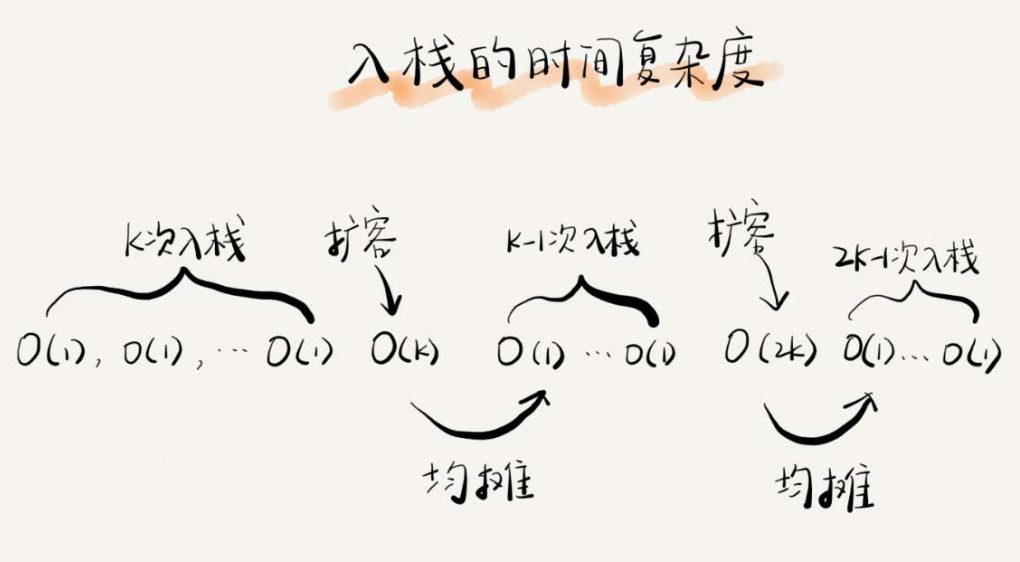 入栈的时间复杂度
K次入栈 扩容 K-1次入栈 扩容 2K-1次入栈
O(1), O(1), … O(1) O(K) O(1) … O(1) O(2K) O(1)… O(1)
均摊 均摊